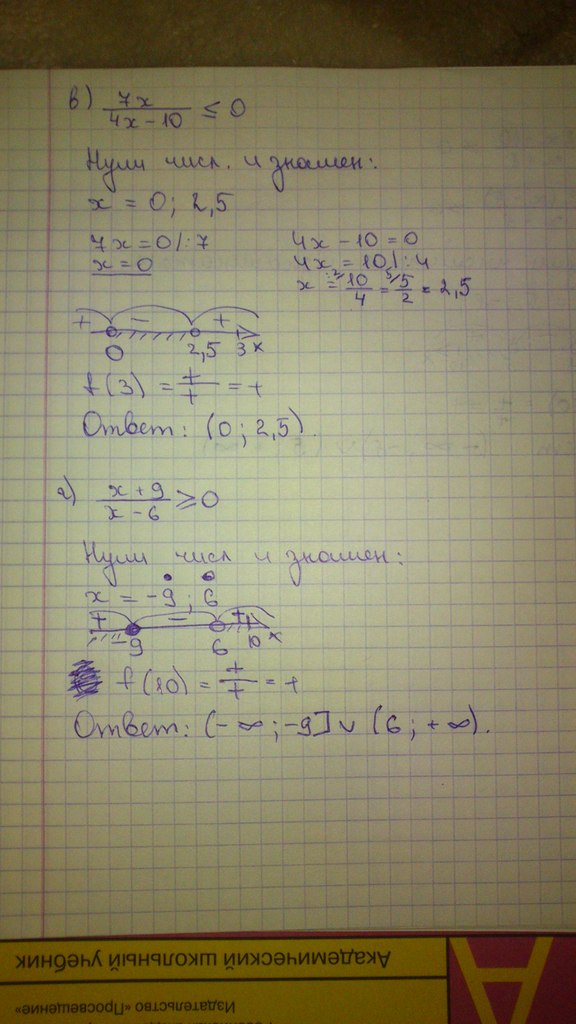 в) 7x / 4x - 10 ≤ 0
Нули числ. и знамен:
x = 0; 2,5
7x = 0 |: 7
x = 0
4x - 10 = 0
4x = 10 |: 4
x = 10/4 = 5/2 = 2,5
+ - +
0 2,5 3 x
f(3) = +/+ = +
Ответ: (0; 2,5).
г) x + 9 / x - 6 ≥ 0
Нули числ и знамен:
x = -9; 6
+ - +
-9 6 10 x
f(10) = +/+ = +
Ответ: (-∞; -9] ∪ (6; +∞).
Академический школьный учебник
Издательство «Просвещение»